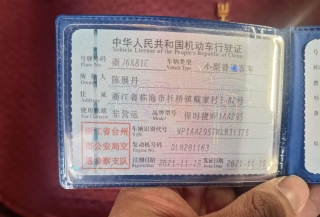 中华人民共和国机动车行驶证
Vehicle License of the People's Republic of China
号牌号码 浙J6X81C 车辆类型 小型普通客车
Plate No. Vehicle Type
所有人 陈展丹
住址 浙江省临海市杜桥镇戴家村3-82号
使用性质 非营运 品牌型号 保时捷WP1AA295
浙江省台州 车辆识别代号
市公安局交 发动机号码 DLH201163
Engine No.
通警察支队 注册日期 2021-11-15 发证日期 2021-11-15